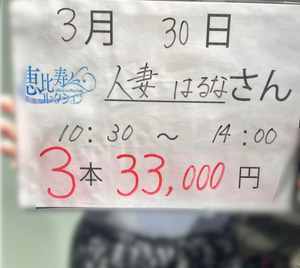 3月 30日
恵比寿 コレクション
人妻 はるなさん
10:30 ～ 14:00
3本 33,000円